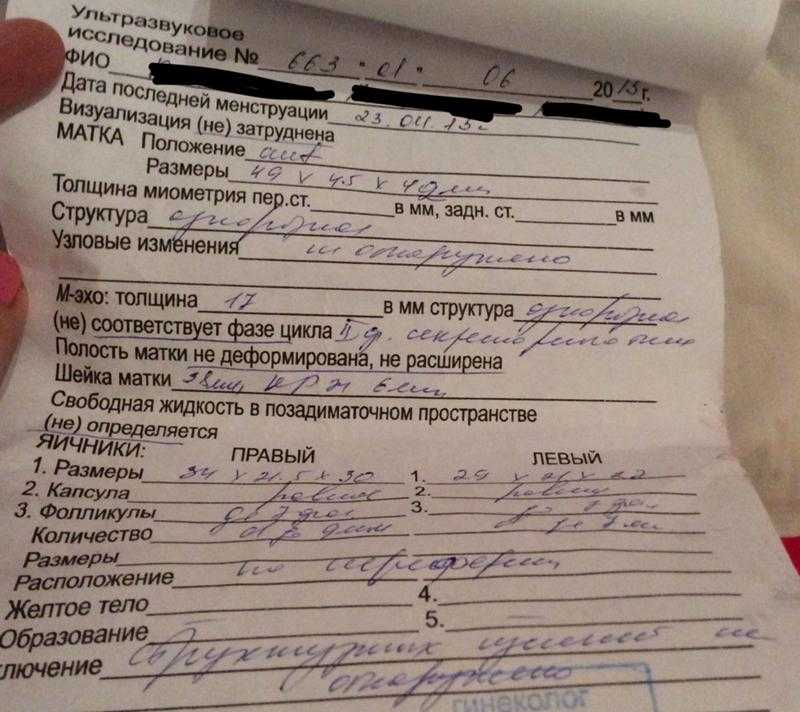 Ультразвуковое
исследование № 663 • 01 • 06 2015г.
ФИО
Дата последней менструации 23.04.15г
Визуализация (не) затруднена
МАТКА Положение ant
Размеры 49 х 45 х 49мм
Толщина миометрия пер.ст. в мм, задн. ст. в мм
Структура однородная
Узловые изменения не обнаружено
М-эхо: толщина 17 в мм структура однородная
(не) соответствует фазе цикла II ф. секреторного типа
Полость матки не деформирована, не расширена
Шейка матки 38мм
Свободная жидкость в позадиматочном пространстве
(не) определяется
ЯИЧНИКИ: ПРАВЫЙ ЛЕВЫЙ
1. Размеры 34 х 21.5 х 30 1. 29 х
2. Капсула ровная 2. ровная
3. Фолликулы до 7 3. до 7
Количество
Размеры
Расположение по периферии
Желтое тело 4.
Образование 5.
ключение Структурных измений не
обнаружено
гинеколог